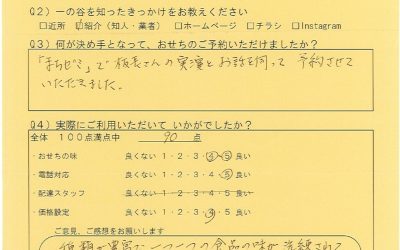 Q2）一の谷を知ったきっかけをお教えください
□近所 ☑紹介（知人・業者） □ホームページ □チラシ □Instagram
Q3）何が決め手となって、おせちのご予約いただけましたか？
「まちゼミ」で板長さんの実演とお話を伺って 予約させて
いただきました。
Q4）実際にご利用いただいて いかがでしたか？
全体 100点満点中 90 点
・おせちの味 良くない 1・2・3・4・5 良い
・電話対応 良くない 1・2・3・4・5 良い
・配達スタッフ 良くない 1・2・3・4・5 良い
・価格設定 良くない 1・2・3・4・5 良い
ご意見、ご感想をお願いします
種類が豊富で 一つ一つの食品の味が洗練されて